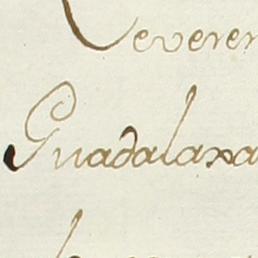 Reveren
Guadalaxa